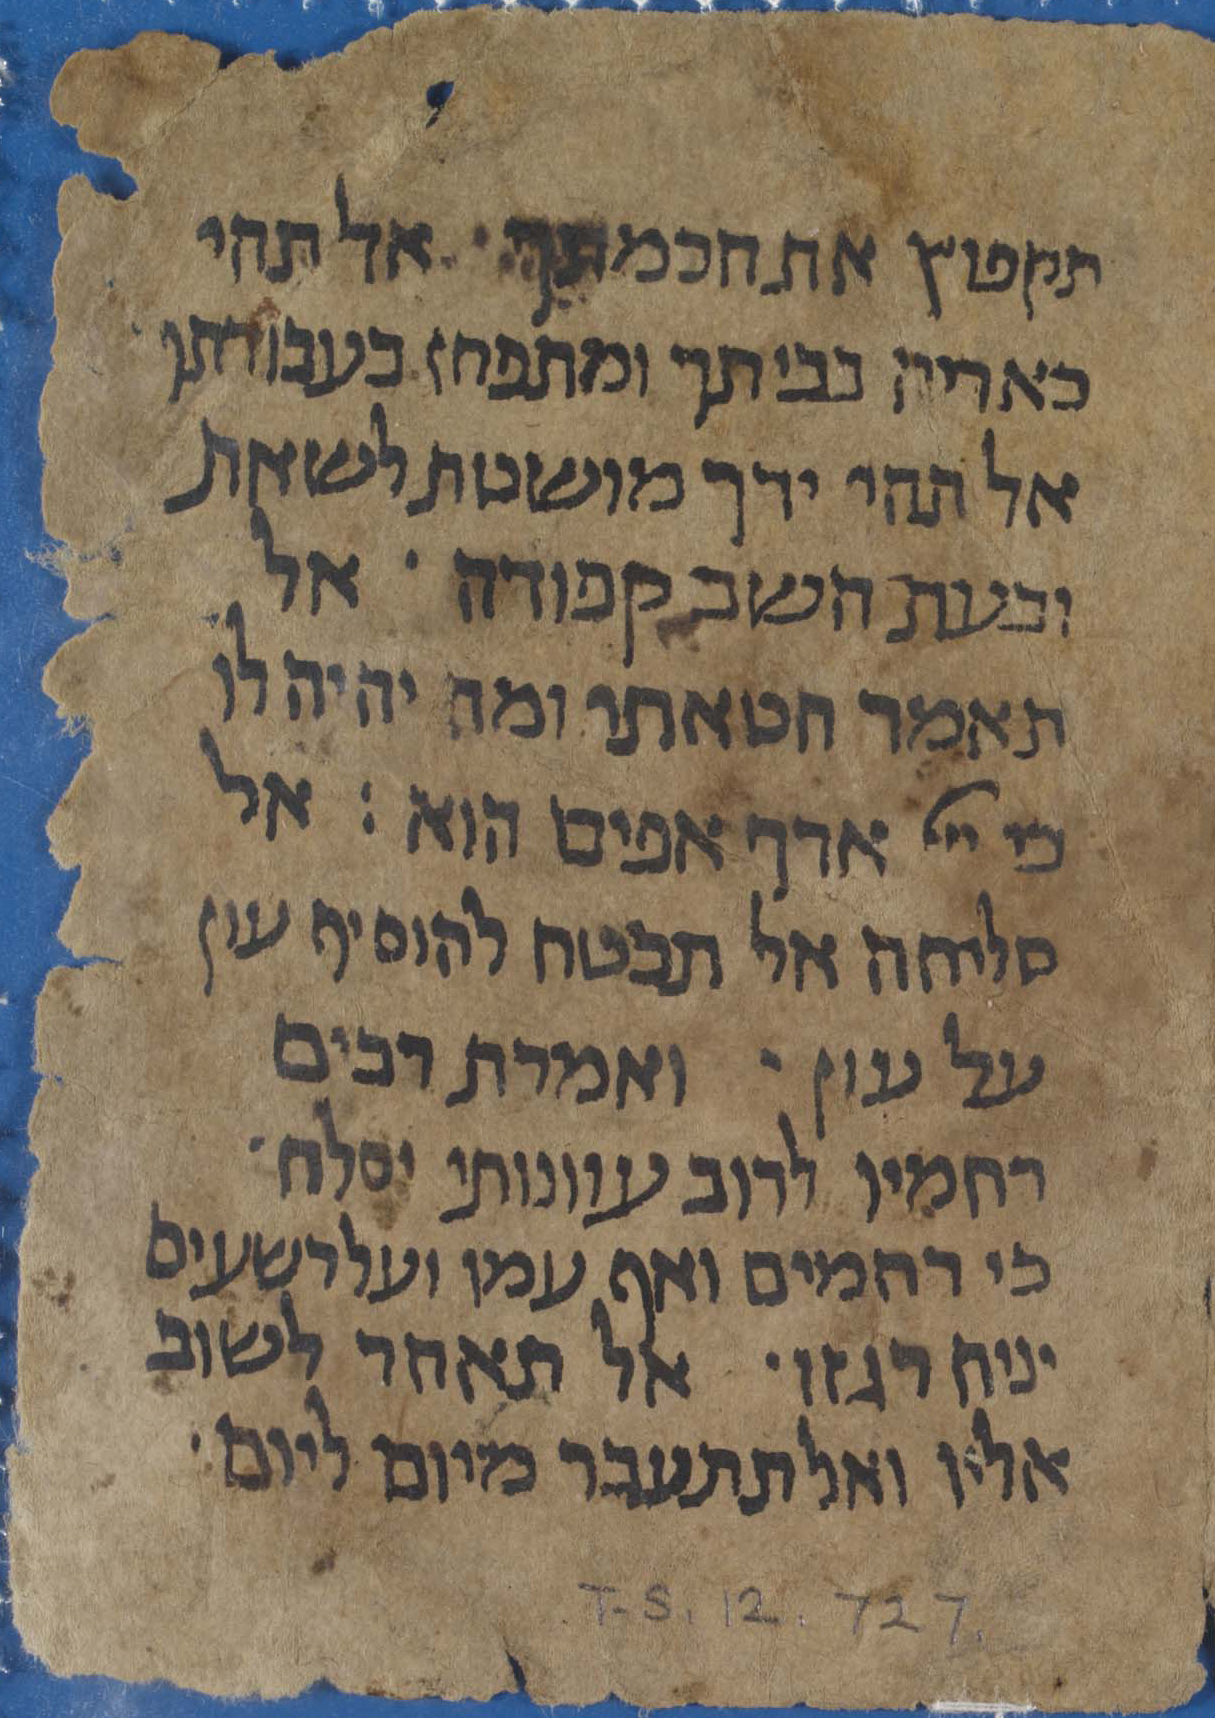 תקפוץ את חכמתך · אל תהי
כאריה בביתך ומתפחז בעבודתך ·
אל תהי ידך מושטת לשאת
ובעת השב קפודה · אל
תאמר חטאתי ומה יהיה לו
כי ייי ארך אפים הוא : אל
סליחה אל תבטח להוסיף עון
על עון · ואמרת רבים
רחמיו לרוב עוונותי יסלח ·
כי רחמים ואף עמו ועל רשעים
יניח רגזו · אל תאחר לשוב
אליו ואל תתעבר מיום ליום ·
T-S. 12. 727.